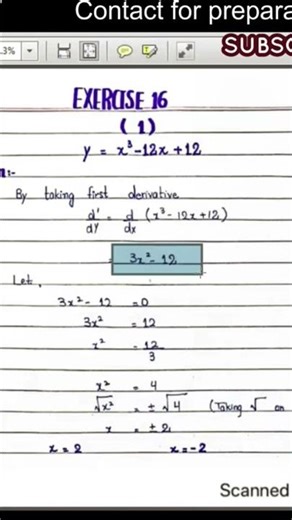 Contact for prepara
.3%
SUBSC
EXERCISE 16
(1)
y = x³-12x+12
n:-
By taking first derivative
d'/dy = d/dx (x³-12x+12)
3x²-12
Let,
3x²-12 =0
3x² = 12
x² = 12/3
x² = 4
√x² = ±√4 (Taking √ on
x = ±2
x=2 x=-2
Scanned